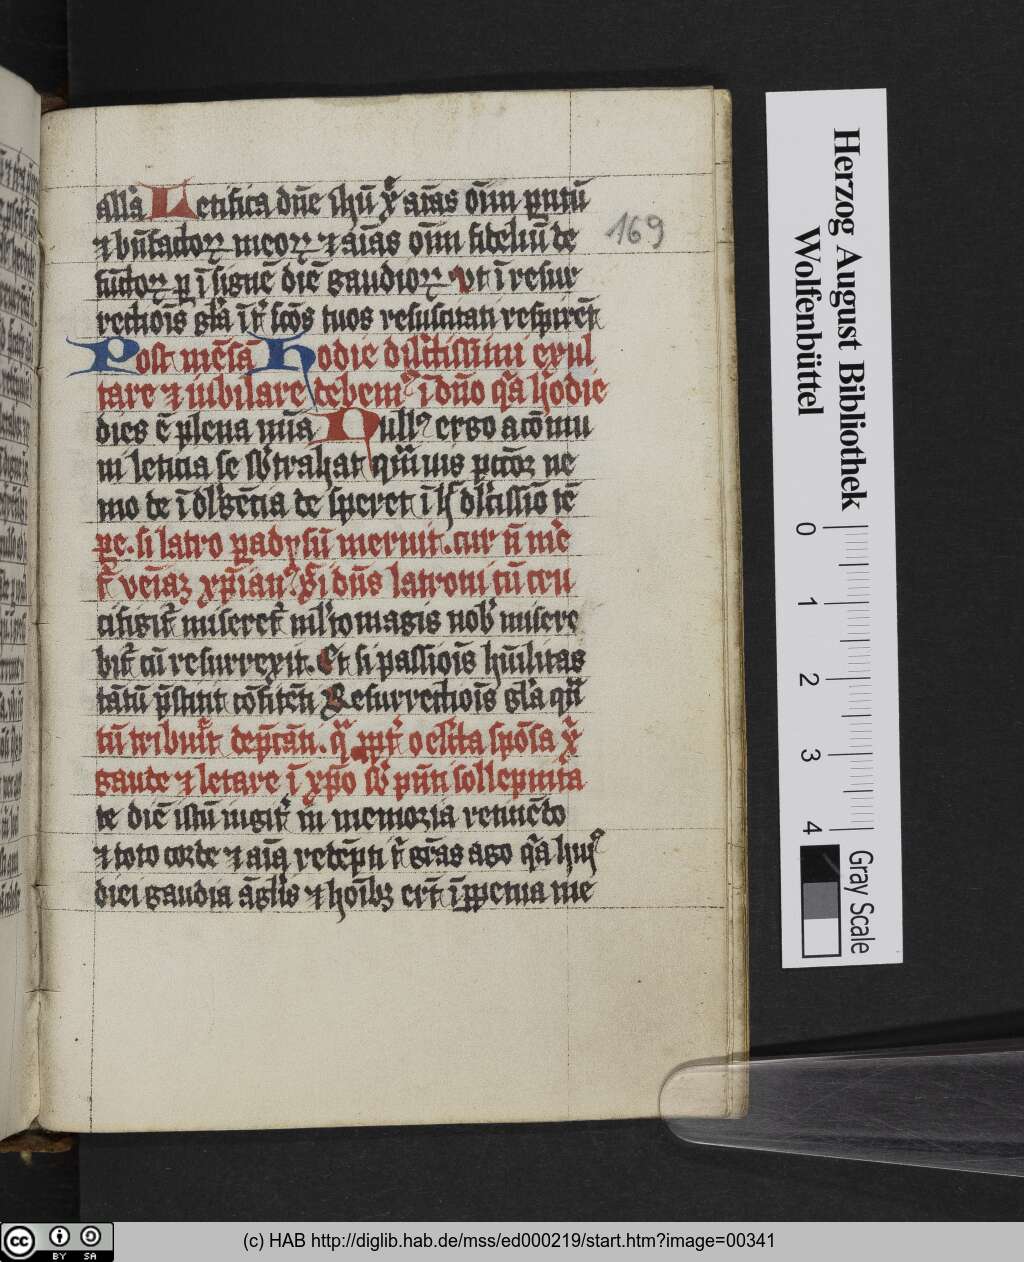 allā Letifica dn̄e ihū xp̄e aīas oīm pn̄tiū
⁊ bn̄factoꝝ meoꝝ ⁊ aīas oīm fideliū de
functoꝝ ꝑ īsignē diē gaudioꝝ vt ī resur
rectiōis gl̄a īt̄ scōs tuos resuscitati respirēt
Post mēsā Hodie dilc̄tissimi exul
tare ⁊ iubilare debemꝰ ī dn̄o qā hodie
dies ē plena mīā Nullꝰ ergo a cōmu
ni leticia se sb̄trahat qāuis pctōꝝ ne
mo de īdulgēcia de speret īh dl̄cissiō tē
pe. si latro ꝑadysū meruit. cur n̄ me
t̄ veīaꝫ xp̄ianꝰ Si dn̄s latroni cū cru
cifigit̄ miseret̄ ml̄to magis nob̄ misere
bit̄ cū resurrexit. Et si passiōis hūilitas
tātū p̄stitit cōfitēti Resurrectiōis gl̄a qn̄
tū tribuit̄ dep̄cāti. o eccl̄ia spōsa xp̄i
gaude ⁊ letare ī xp̄o sb̄ pn̄ti sollepnita
te diē istū iugit̄ in memoria retinēdo
⁊ toto corde ⁊ aīa redēpti t̄ gr̄as ago qā huiꝰ
diei gaudia āglis ⁊ hoībꝫ
169
Herzog August Bibliothek
Wolfenbüttel
0 1 2 3 4
Gray Scale
CC BY SA
(c) HAB http://diglib.hab.de/mss/ed000219/start.htm?image=00341